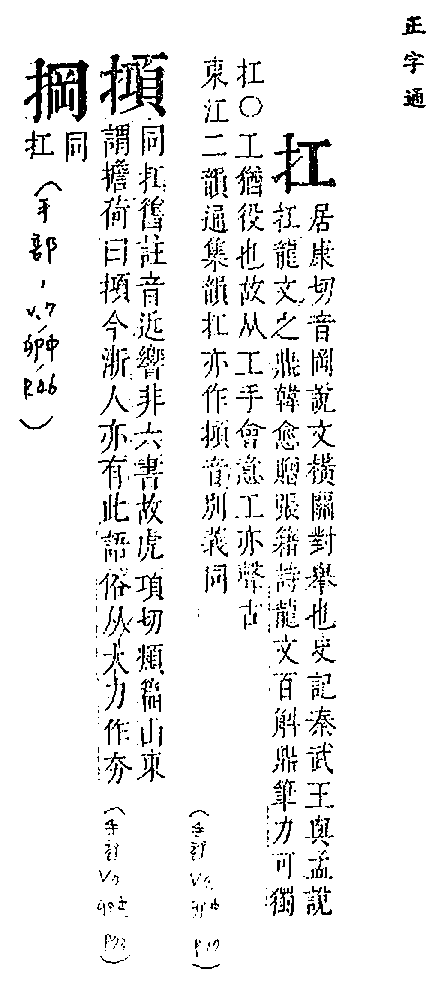 正字通
扛
居康切音岡說文橫關對舉也史記秦武王與孟說
扛龍文之鼎韓愈贈張籍詩龍文百斛鼎筆力可獨
扛○工猶役也故从工手會意工亦聲古
東江二韻通集韻扛亦作摃音別義同
(手部
摃
同扛舊註音近響非六書故虎項切類篇山東
謂擔荷曰摃今浙人亦有此語俗从大力作夯
(手部
掆
同
扛
(手部,